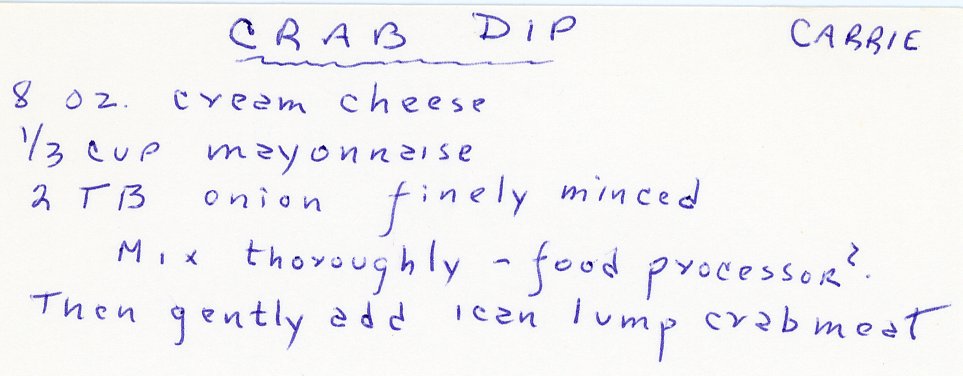 CRAB DIP CARRIE
8 oz. cream cheese
1/3 cup mayonnaise
2 TB onion finely minced
Mix thoroughly - food processor?.
Then gently add 1can lump crabmeat